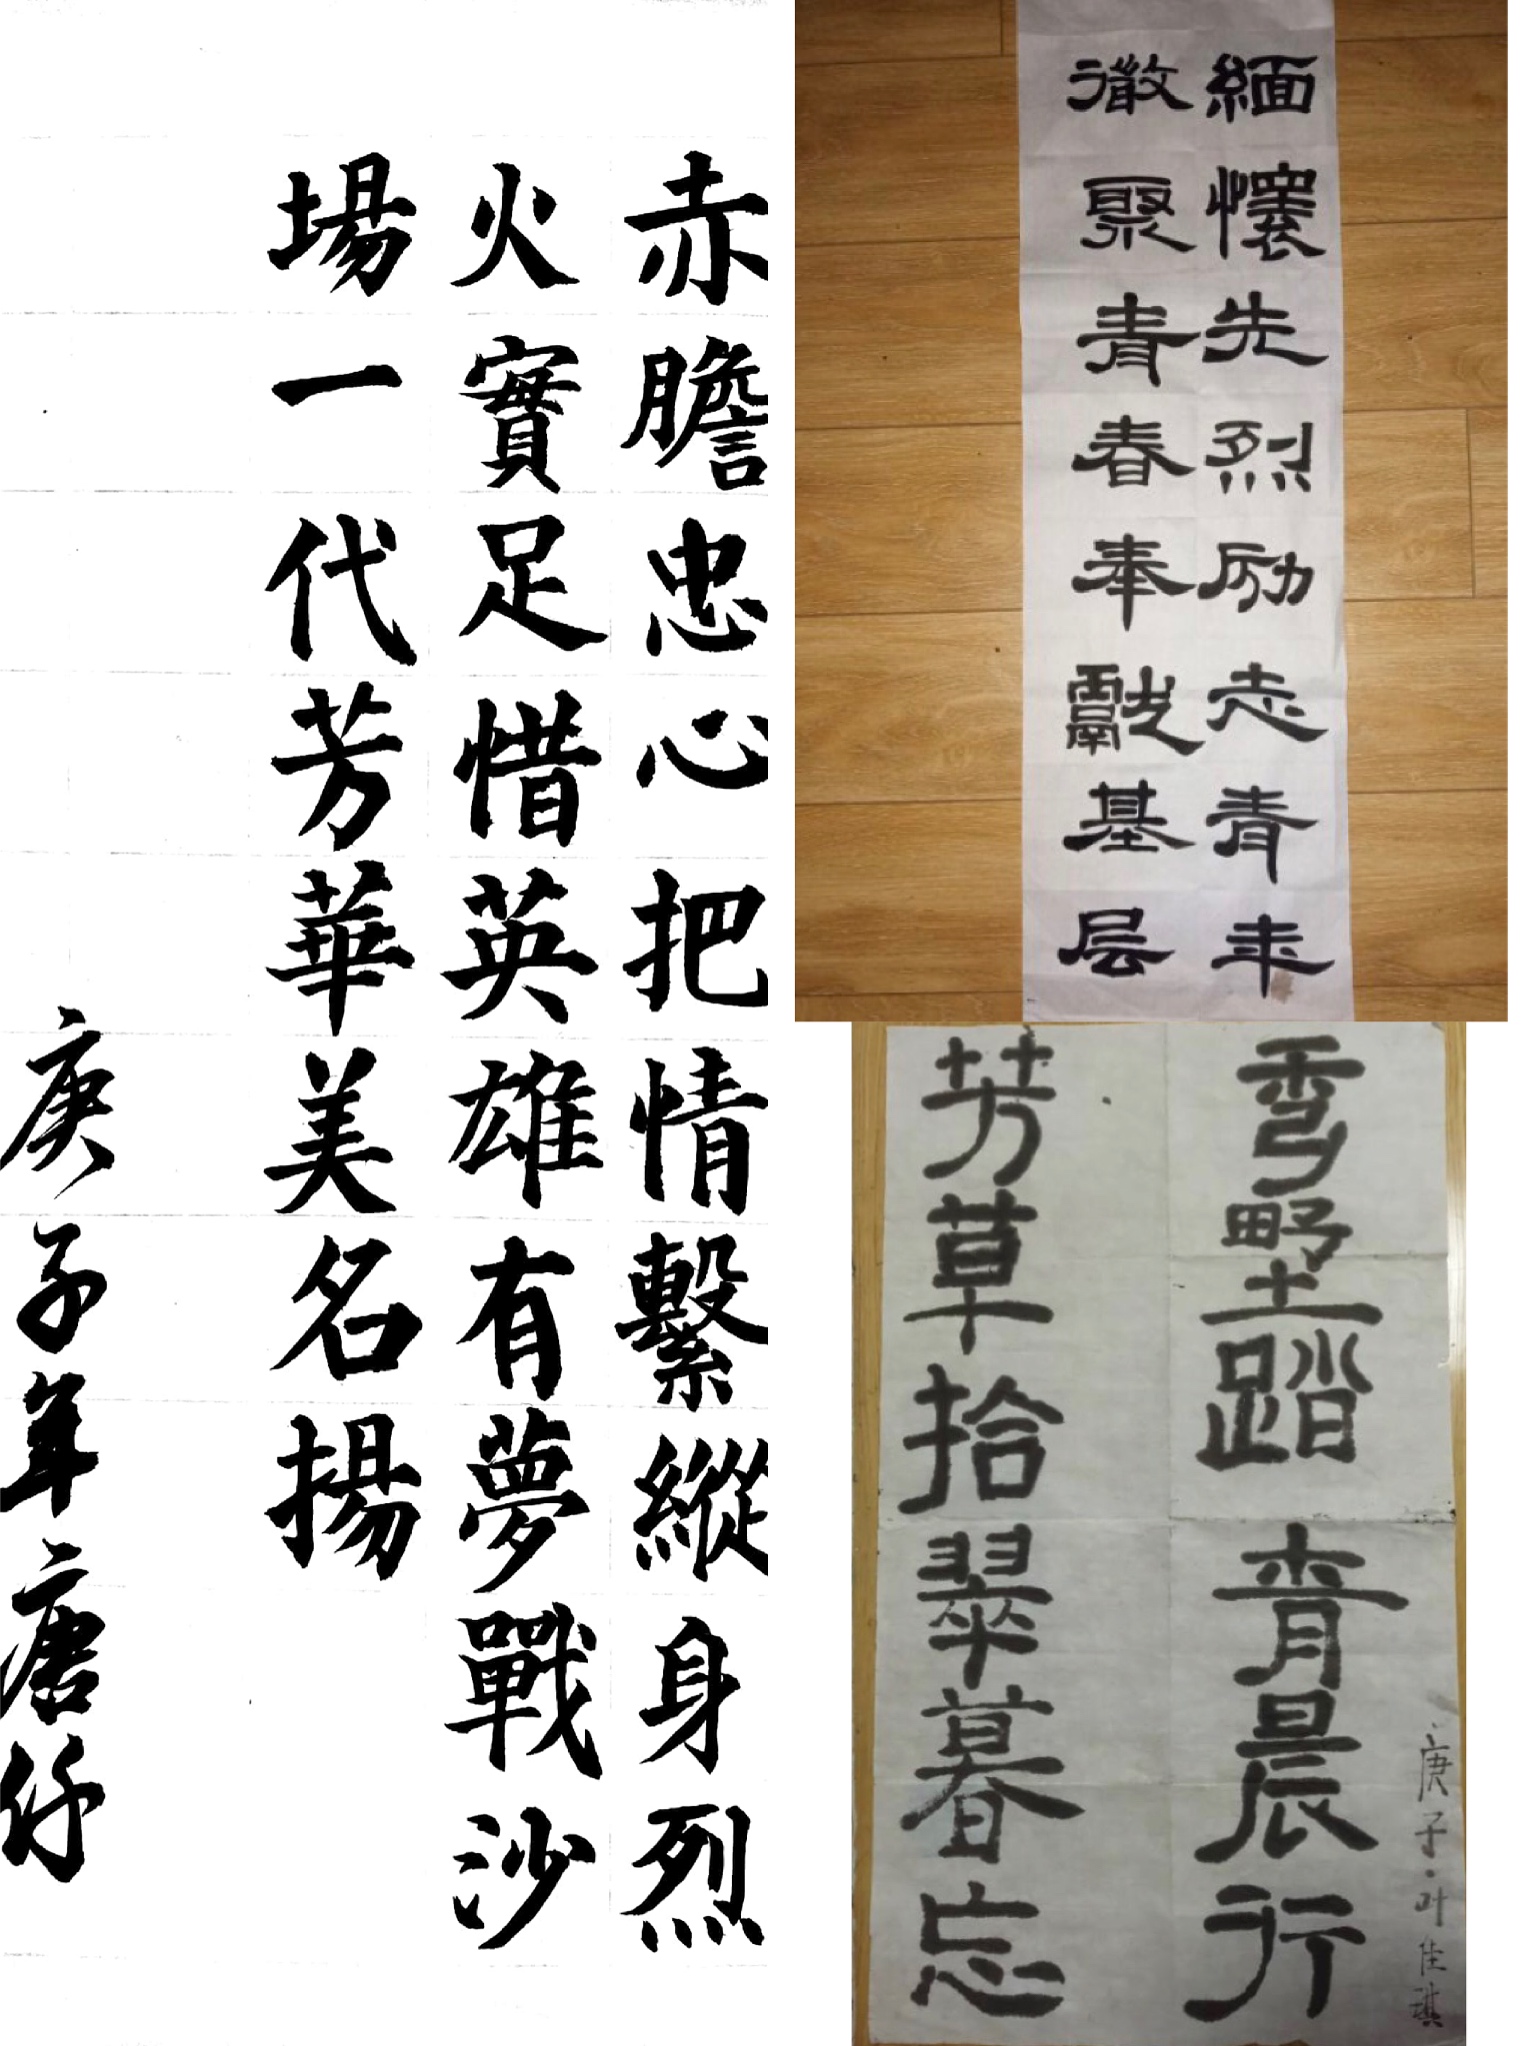 赤膽忠心把情繫縱身烈
火實足惜英雄有夢戰沙
場一代芳華美名揚
庚子年唐仔
緬懷先烈励志青年
徽聚青春奉獻基层
秀野踏青晨行
芳草拾翠暮忘
庚子·叶佳琪